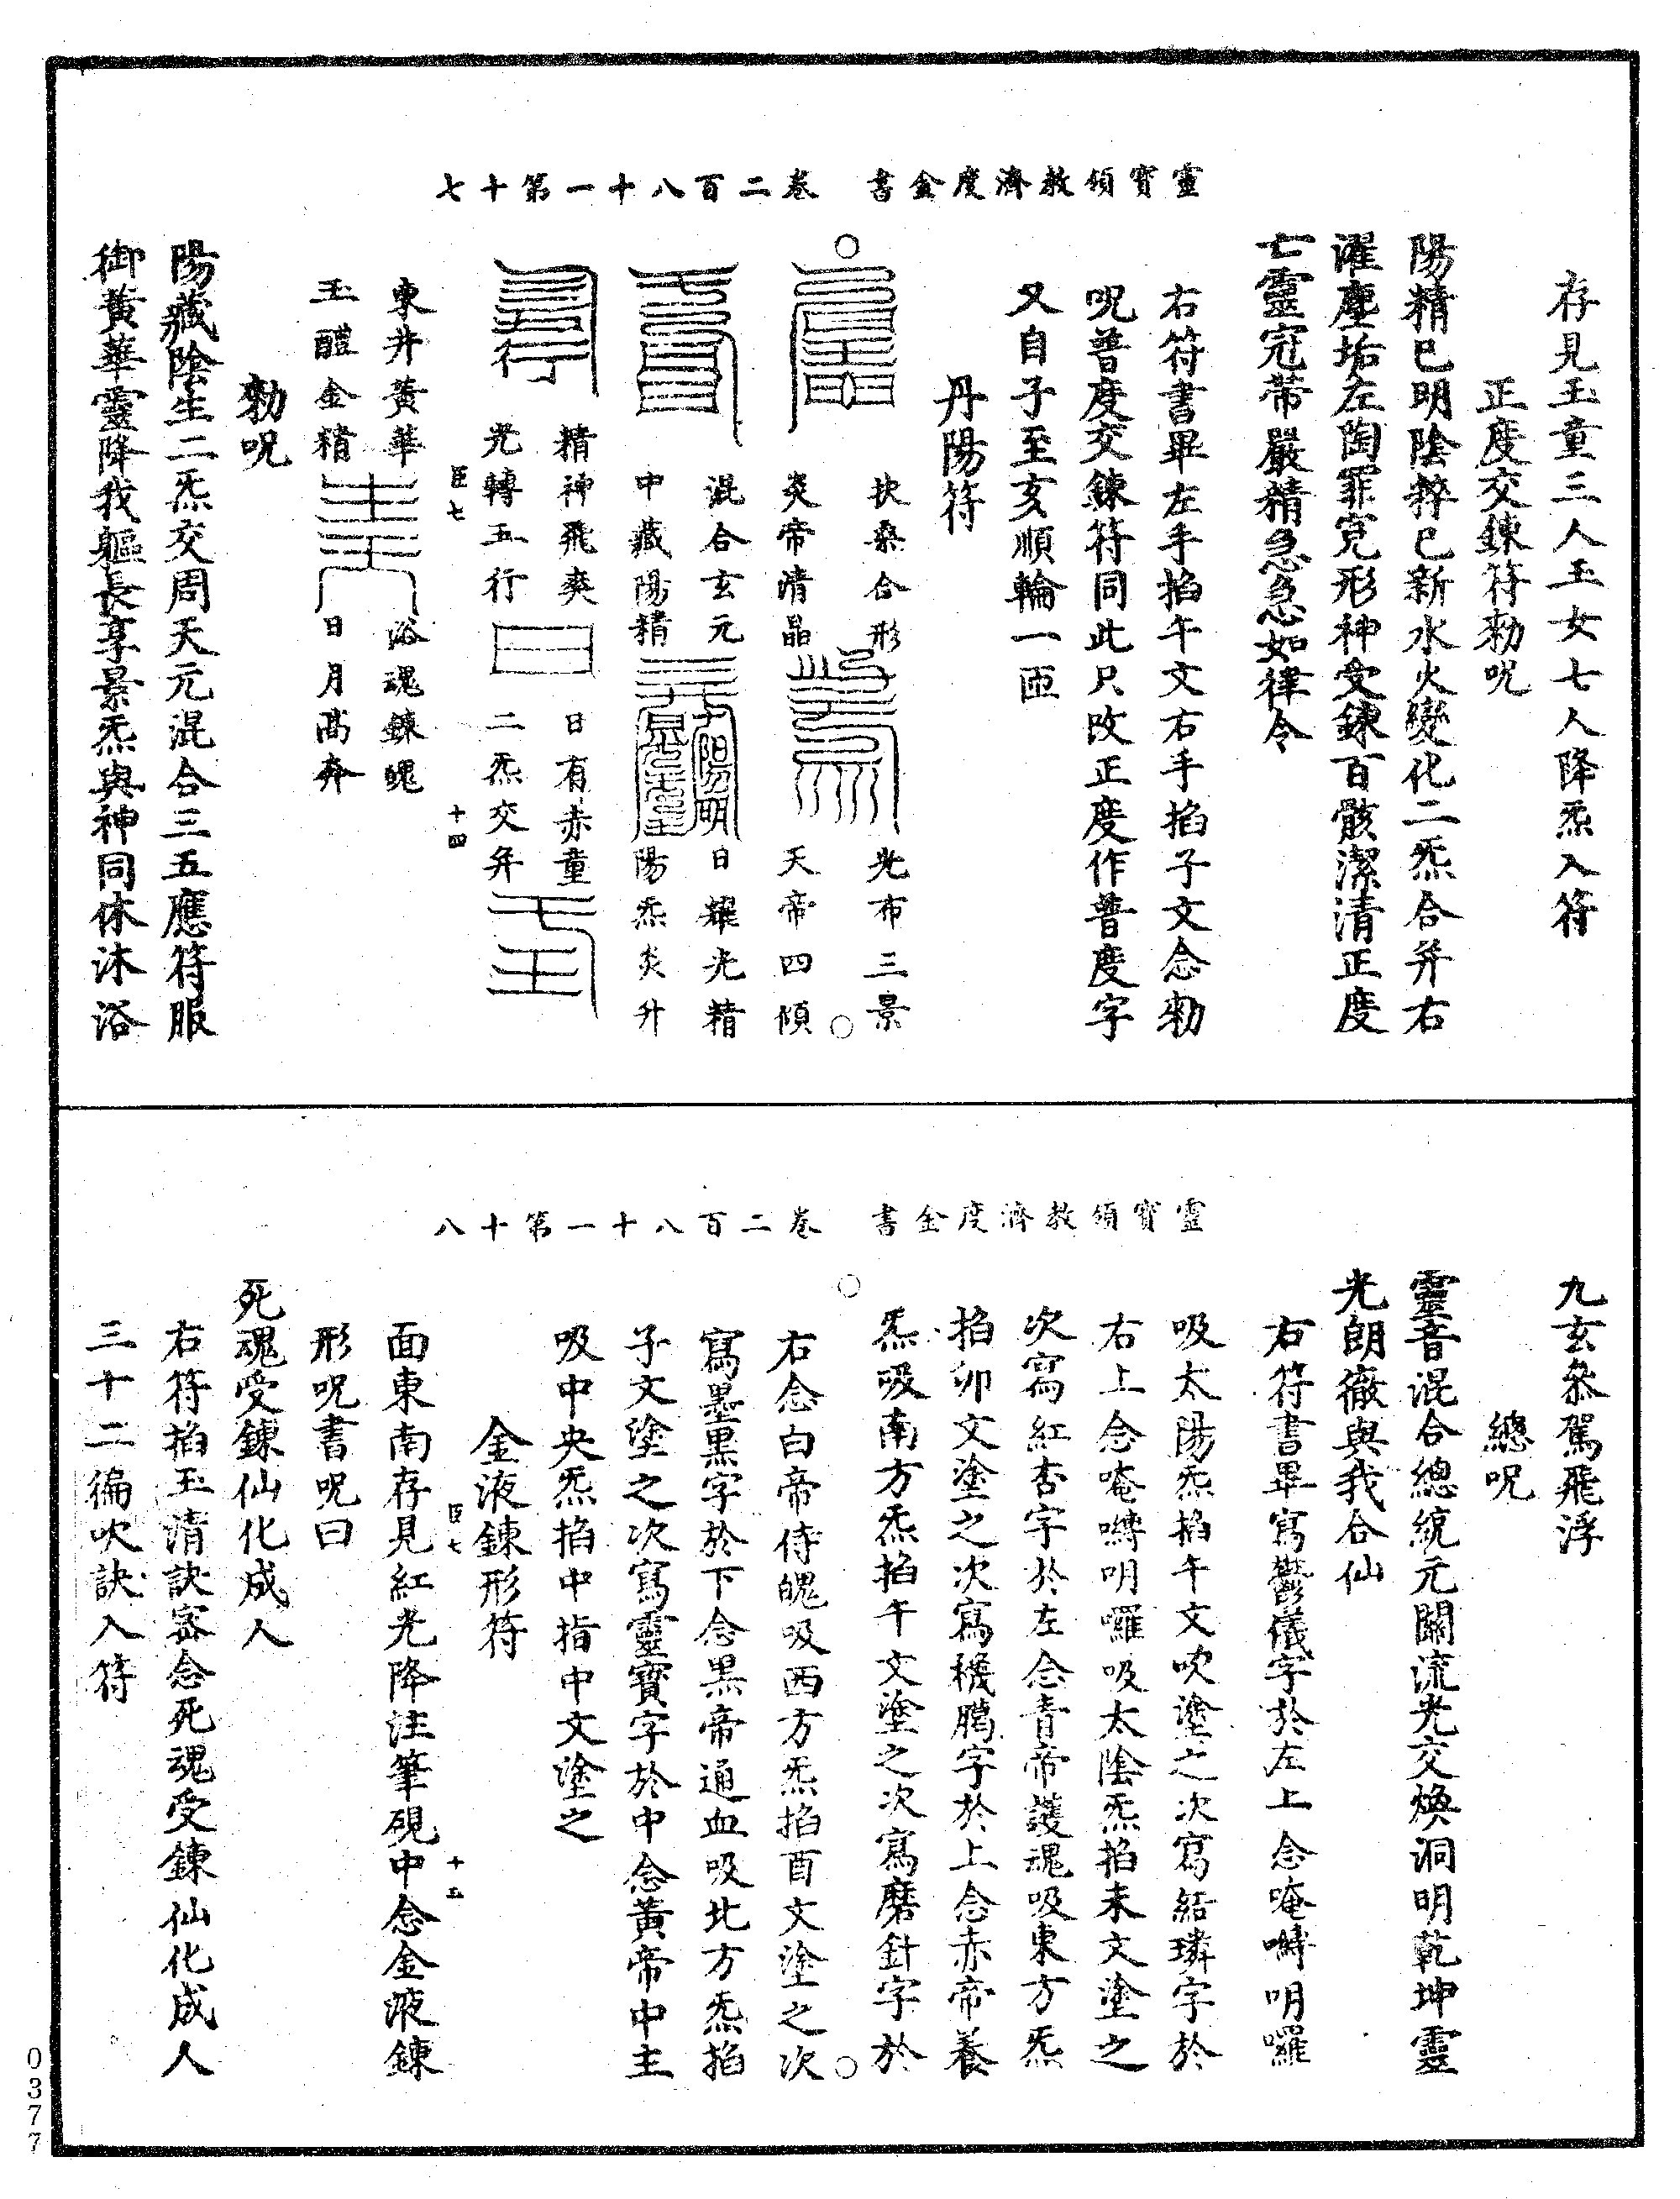 靈寶領教濟度金書　卷二百八十一第十七
存見玉童三人玉女七人降炁入符
正度交鍊符勑呪
陽精已明陰粹已新水火變化二炁合并右
濯塵垢左陶罪寃形神受鍊百骸潔清正度
亡靈冠帶嚴精急急如律令
右符書畢左手掐午文右手掐子文念勑
呪普度交鍊符同此只改正度作普度字
又自子至亥順輪一匝
丹陽符
扶桑合形　光布三景
炎帝清晶　天帝四傾
混合玄元　日耀光精
中藏陽精　陽炁炎升
精神飛爽　日有赤童
光轉五行　二炁交并
臣七　十四
東井黃華　浴魂鍊魄
玉醴金精　日月高奔
勑呪
陽藏陰生二炁交周天元混合三五應符服
御黃華靈降我軀長享景炁與神同休沐浴
靈寶領教濟度金書　卷二百八十一第十八
九玄叅駕飛浮
總呪
靈音混合總統元關流光交煥洞明乾坤靈
光朗徹與我合仙
右符書畢寫鬱儀字於左上念唵嚩明囉
吸太陽炁掐午文吹塗之次寫結璘字於
右上念唵嚩明囉吸太陰炁掐未文塗之
次寫紅杏字於左念青帝護魂吸東方炁
掐卯文塗之次寫穖膓字於上念赤帝養
炁吸南方炁掐午文塗之次寫磨針字於
右念白帝侍魄吸西方炁掐酉文塗之次
寫墨黑字於下念黑帝通血吸北方炁掐
子文塗之次寫靈寶字於中念黃帝中主
吸中央炁掐中指中文塗之
金液鍊形符
臣七　十五
面東南存見紅光降注筆硯中念金液鍊
形呪書呪曰
死魂受鍊仙化成人
右符掐玉清訣密念死魂受鍊仙化成人
三十二徧吹訣入符
0377